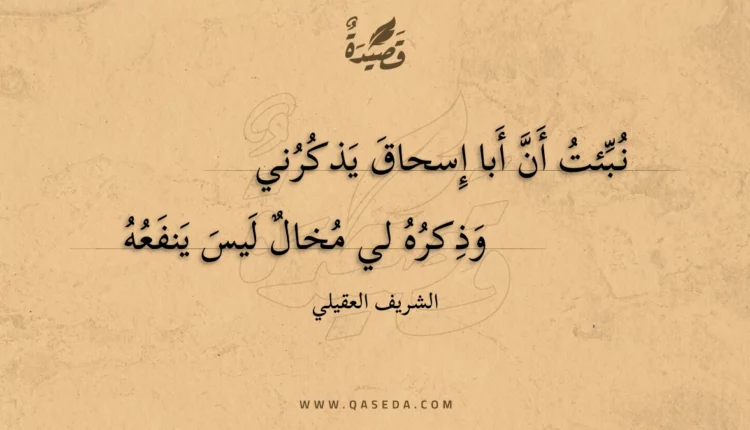 قَصِيدَةٌ
نُبِّئتُ أَنَّ أَبا إِسحاقَ يَذكُرُني
وَذِكرُهُ لي مُخالٌ لَيسَ يَنفَعُهُ
الشريف العقيلي
WWW.QASEDA.COM